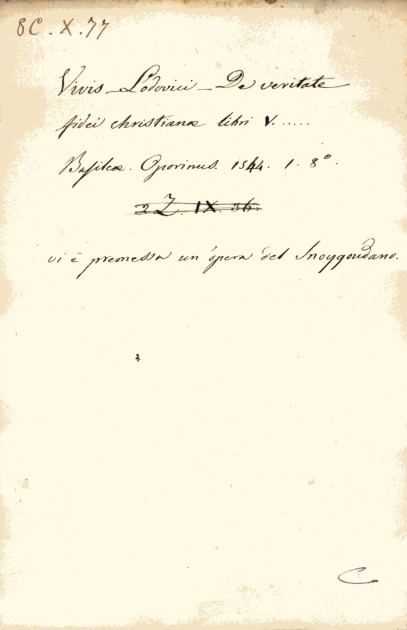 8C.X.77
Vivis - Lodovici - De veritate
fidei christianæ libri V......
Basileæ. Oporinus. 1544. 1. 8º.
2 Z. IX. 36.
vi è premessa un' opera del Snoygoudano.